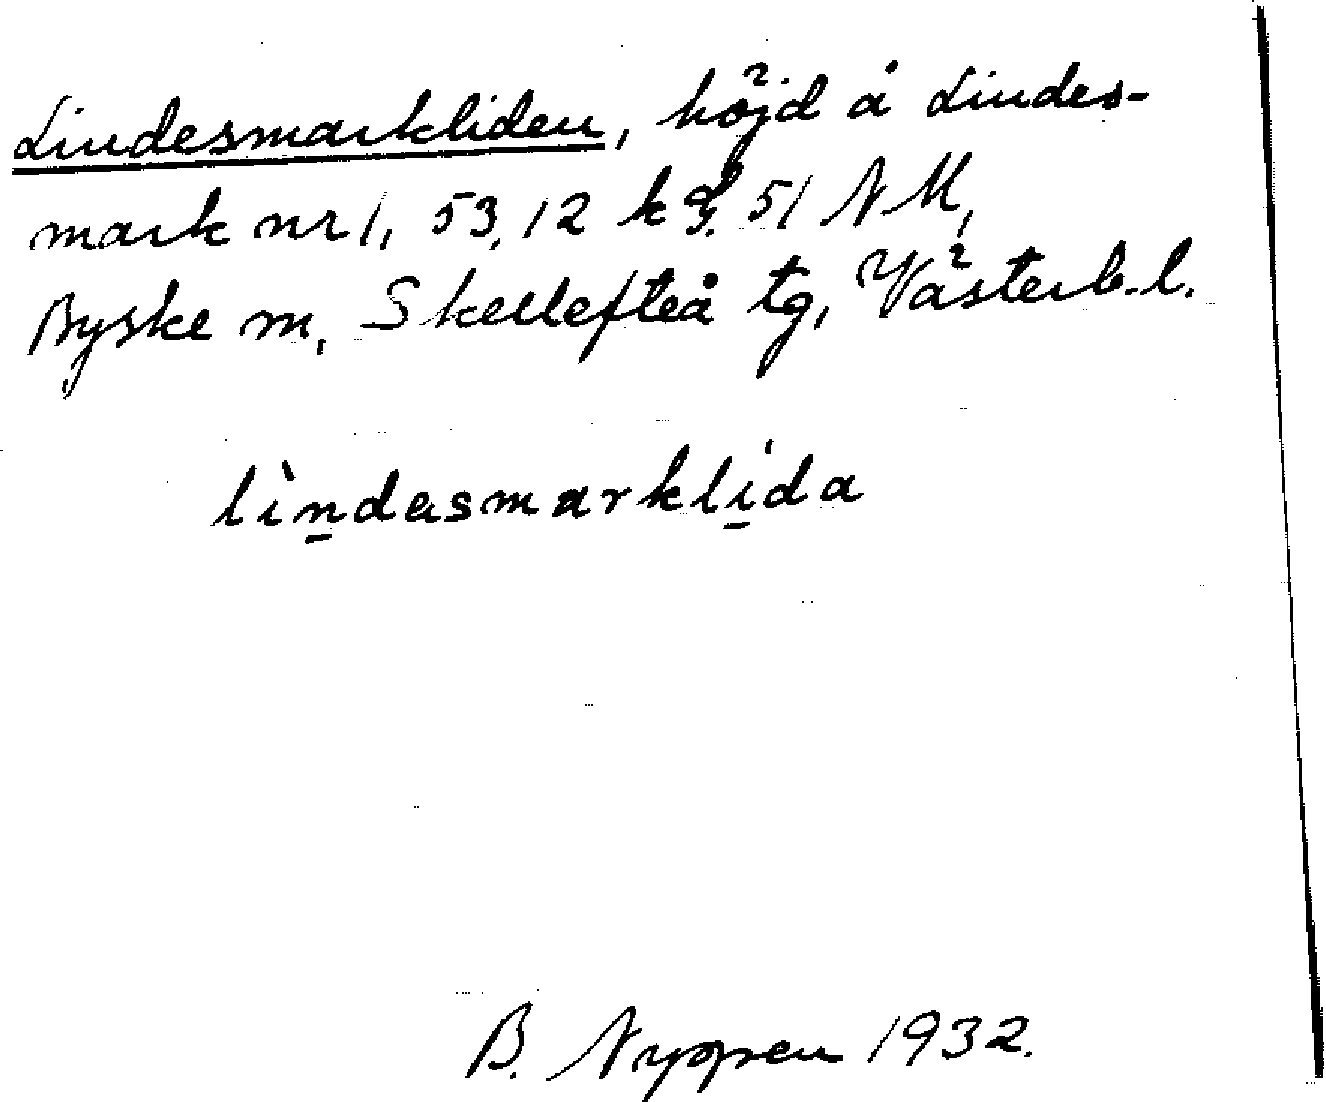 Lindesmarkliden, höjd å Lindes-
mark nr 1, 53,12 51 NM,
Byske m, Skellefteå tg, Västerb.l.
lìndasmarklida
B. 1932.